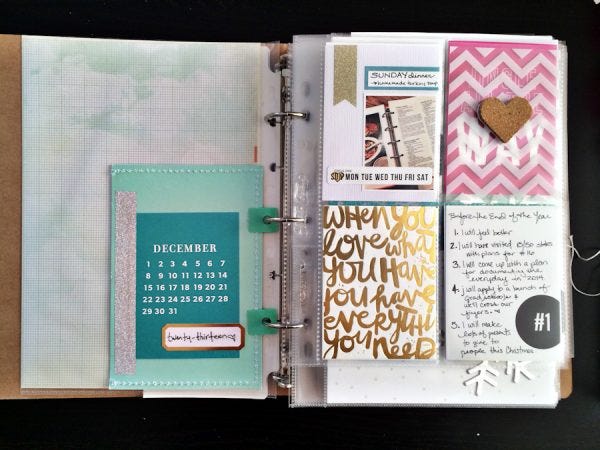 DECEMBER
1 2 3 4 5 6 7
8 9 10 11 12 13 14
15 16 17 18 19 20 21
22 23 24 25 26 27 28
29 30 31
twenty-thirteen
SUNDAY dinner
homemade turkey soup
SUN MON TUE WED THU FRI SAT
WAY
WHEN YOU
love what
YOU HAVE
you have
everything
YOU NEED
Before the End of the Year
1. I will feel better
2. I will have visited 15/50 states
with plans for #16
3. I will come up with a plan
for documenting the
everyday in 2014
4. I will apply to a bunch of
grad schools &
we'll cross our
fingers.
5. I will make
lots of presents
to give to
people this Christmas
#1